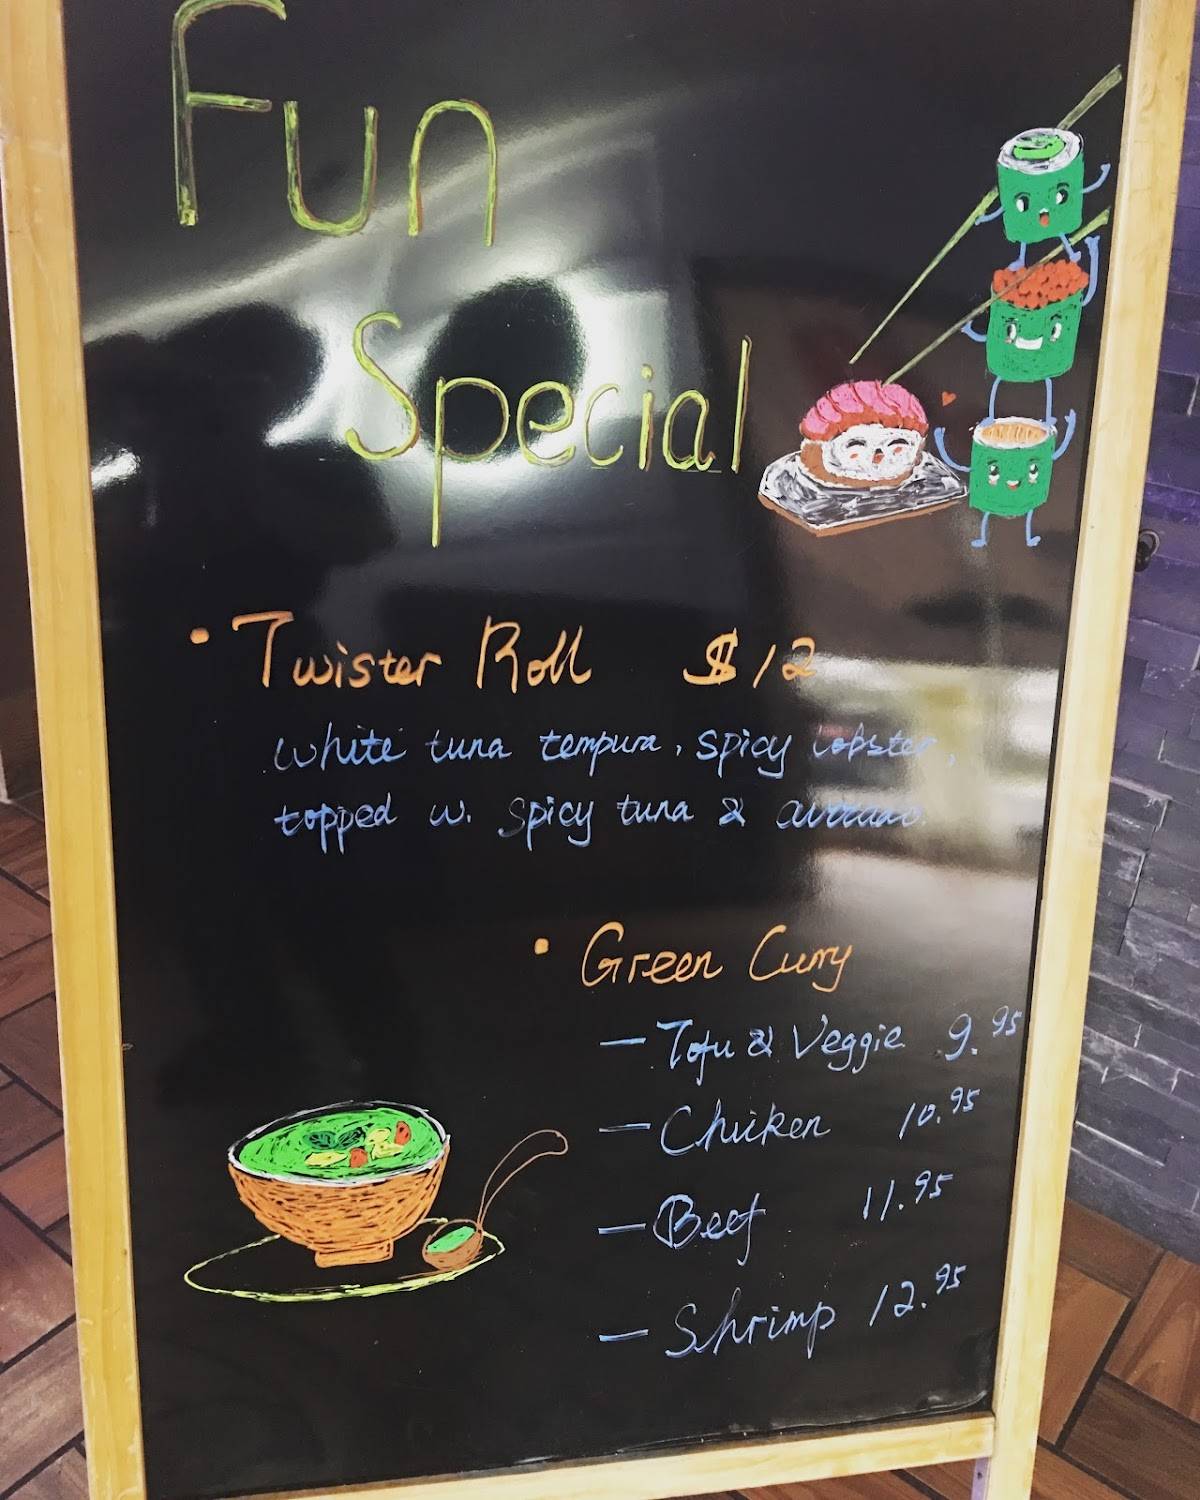 Fun
Special
• Twister Roll $12
white tuna tempura, spicy lobster,
topped w. spicy tuna & avocado.
• Green Curry
— Tofu & Veggie 9.95
— Chicken 10.95
— Beef 11.95
— Shrimp 12.95